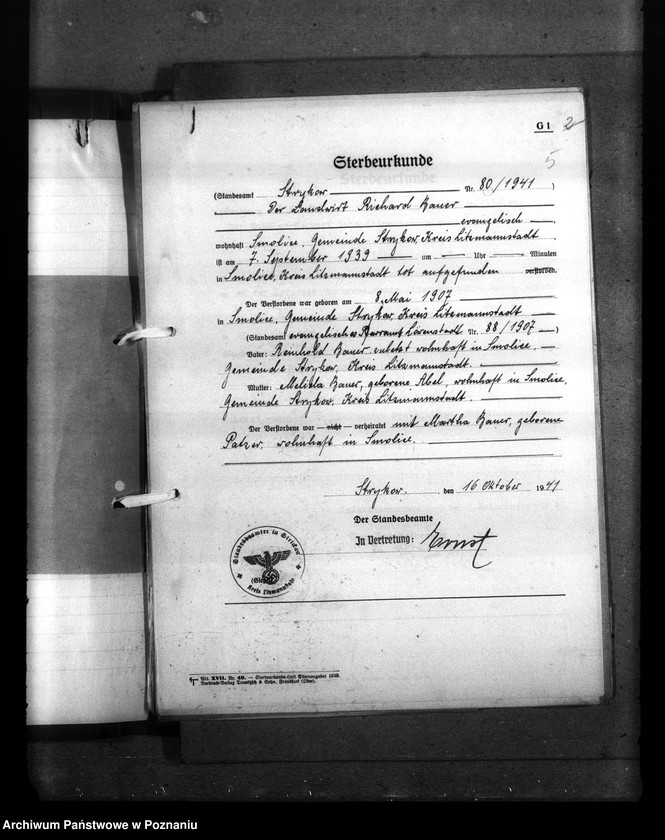 G 1 2
5
Sterbeurkunde
(Standesamt Strykow Nr. 80/1941)
Der Landwirt Richard Bauer
evangelisch
wohnhaft Smolice, Gemeinde Strykow, Kreis Litzmannstadt
ist am 7. September 1939 — um — Uhr — Minuten
in Smolice, Kreis Litzmannstadt tot aufgefunden verstorben.
Der Verstorbene war geboren am 8. Mai 1907
in Smolice, Gemeinde Strykow, Kreis Litzmannstadt
(Standesamt evangelisches Pfarramt Nr. 88/1907)
Vater: Reinhold Bauer zuletzt wohnhaft in Smolice,
Gemeinde Strykow, Kreis Litzmannstadt.
Mutter: Bauer, geborene Abel, wohnhaft in Smolice,
Gemeinde Strykow, Kreis Litzmannstadt.
Der Verstorbene war — nicht — verheiratet mit Martha Bauer, geborene
Patzer, wohnhaft in Smolice.
Strykow, den 16 Oktober 1941
Der Standesbeamte
In Vertretung: Ernst
Standesbeamter in
(Siegel)
Kreis Litzmannstadt
XVII. Nr. 49. — Sterbeurkunde (mit Elternangabe) 1938.
Frankfurt (Oder).
Archiwum Państwowe w Poznaniu